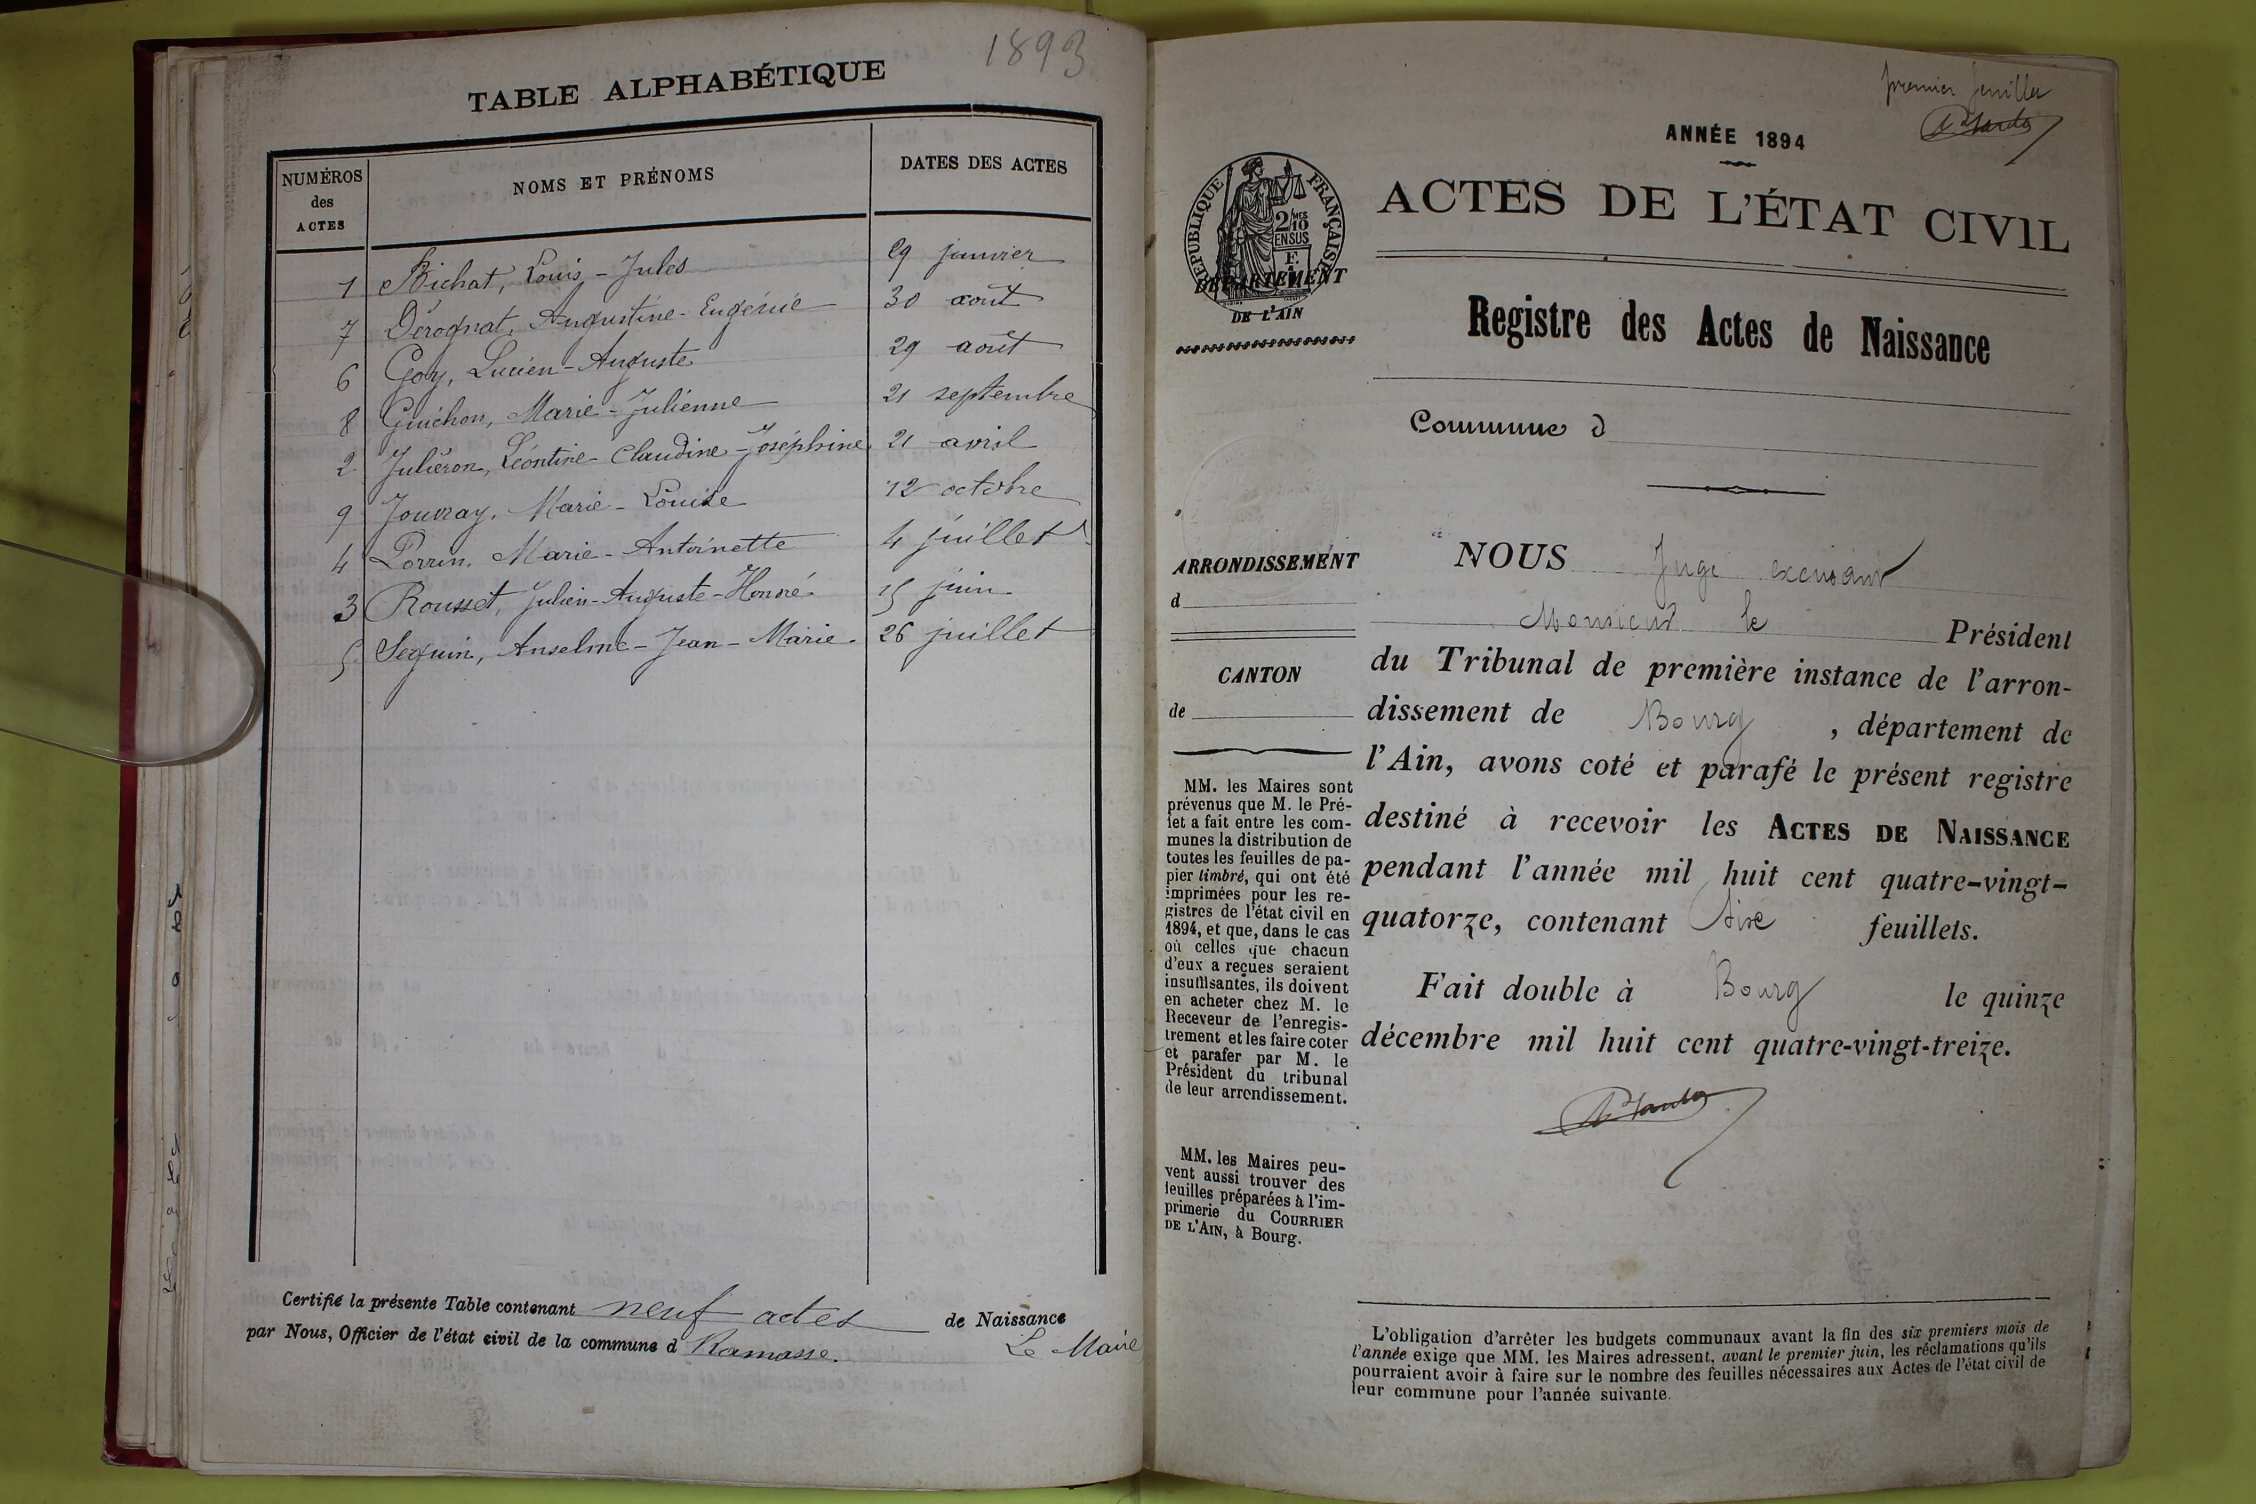 1893
TABLE ALPHABÉTIQUE
NUMÉROS des ACTES NOMS ET PRÉNOMS DATES DES ACTES
1 Bichat, Louis-Jules 29 janvier
7 Dérognat, Augustine-Eugénie 30 août
6 Goy, Lucien-Auguste 29 août
8 Guichon, Marie-Julienne 21 septembre
2 Juliéron, Léontine-Claudine-Joséphine 21 avril
9 Jouvray, Marie-Louise 12 octobre
4 Perrin, Marie-Antoinette 4 juillet
3 Rousset, Julien-Auguste-Honoré 15 juin
5 Seguin, Anselme-Jean-Marie 26 juillet
Certifié la présente Table contenant neuf actes de Naissance
par Nous, Officier de l'état civil de la commune d Ramasse.
Le Maire
premier feuillet
ANNÉE 1894
RÉPUBLIQUE FRANÇAISE
2/10MES
EN SUS
DÉPARTEMENT
DE L'AIN
ACTES DE L'ÉTAT CIVIL
Registre des Actes de Naissance
Commune d
ARRONDISSEMENT
d
CANTON
de
MM. les Maires sont
prévenus que M. le Pré-
fet a fait entre les com-
munes la distribution de
toutes les feuilles de pa-
pier timbré, qui ont été
imprimées pour les re-
gistres de l'état civil en
1894, et que, dans le cas
où celles que chacun
d'eux a reçues seraient
insuffisantes, ils doivent
en acheter chez M. le
Receveur de l'enregis-
trement et les faire coter
et parafer par M. le
Président du tribunal
de leur arrondissement.
MM. les Maires peu-
vent aussi trouver des
feuilles préparées à l'im-
primerie du COURRIER
DE L'AIN, à Bourg.
NOUS Juge
Monsieur le Président
du Tribunal de première instance de l'arron-
dissement de Bourg, département de
l'Ain, avons coté et parafé le présent registre
destiné à recevoir les ACTES DE NAISSANCE
pendant l'année mil huit cent quatre-vingt-
quatorze, contenant six feuillets.
Fait double à Bourg le quinze
décembre mil huit cent quatre-vingt-treize.
L'obligation d'arrêter les budgets communaux avant la fin des six premiers mois de
l'année exige que MM. les Maires adressent, avant le premier juin, les réclamations qu'ils
pourraient avoir à faire sur le nombre des feuilles nécessaires aux Actes de l'état civil de
leur commune pour l'année suivante.